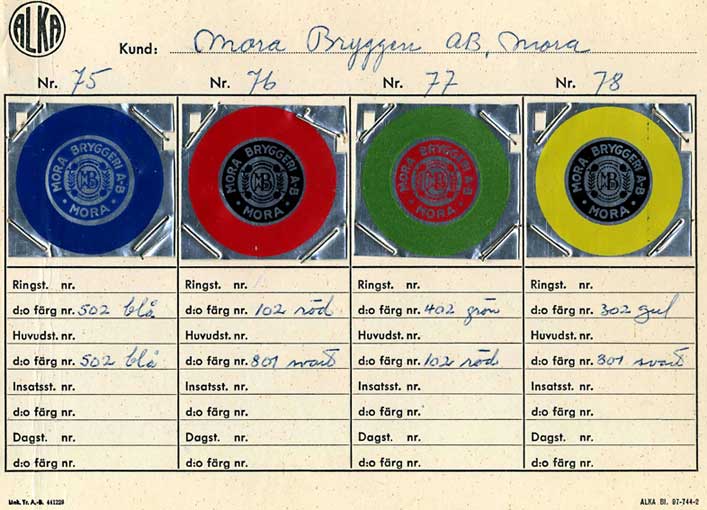 ALKA
Kund: Mora Bryggeri AB, Mora
Nr. 75 Nr. 76 Nr. 77 Nr. 78
MORA BRYGGERI A-B • MORA • MB
MORA BRYGGERI A-B • MORA • MB
MORA BRYGGERI A-B • MORA • MB
MORA BRYGGERI A-B • MORA • MB
Ringst. nr. Ringst. nr. Ringst. nr. Ringst. nr.
d:o färg nr. 502 blå d:o färg nr. 102 röd d:o färg nr. 402 grön d:o färg nr. 302 gul
Huvudst. nr. Huvudst. nr. Huvudst. nr. Huvudst. nr.
d:o färg nr. 502 blå d:o färg nr. 801 svart d:o färg nr. 102 röd d:o färg nr. 801 svart
Insatsst. nr. Insatsst. nr. Insatsst. nr. Insatsst. nr.
d:o färg nr. d:o färg nr. d:o färg nr. d:o färg nr.
Dagst. nr. Dagst. nr. Dagst. nr. Dagst. nr.
d:o färg nr. d:o färg nr. d:o färg nr. d:o färg nr.
Link. Tr. A.-B. 441229 ALKA Bl. 97-744-2